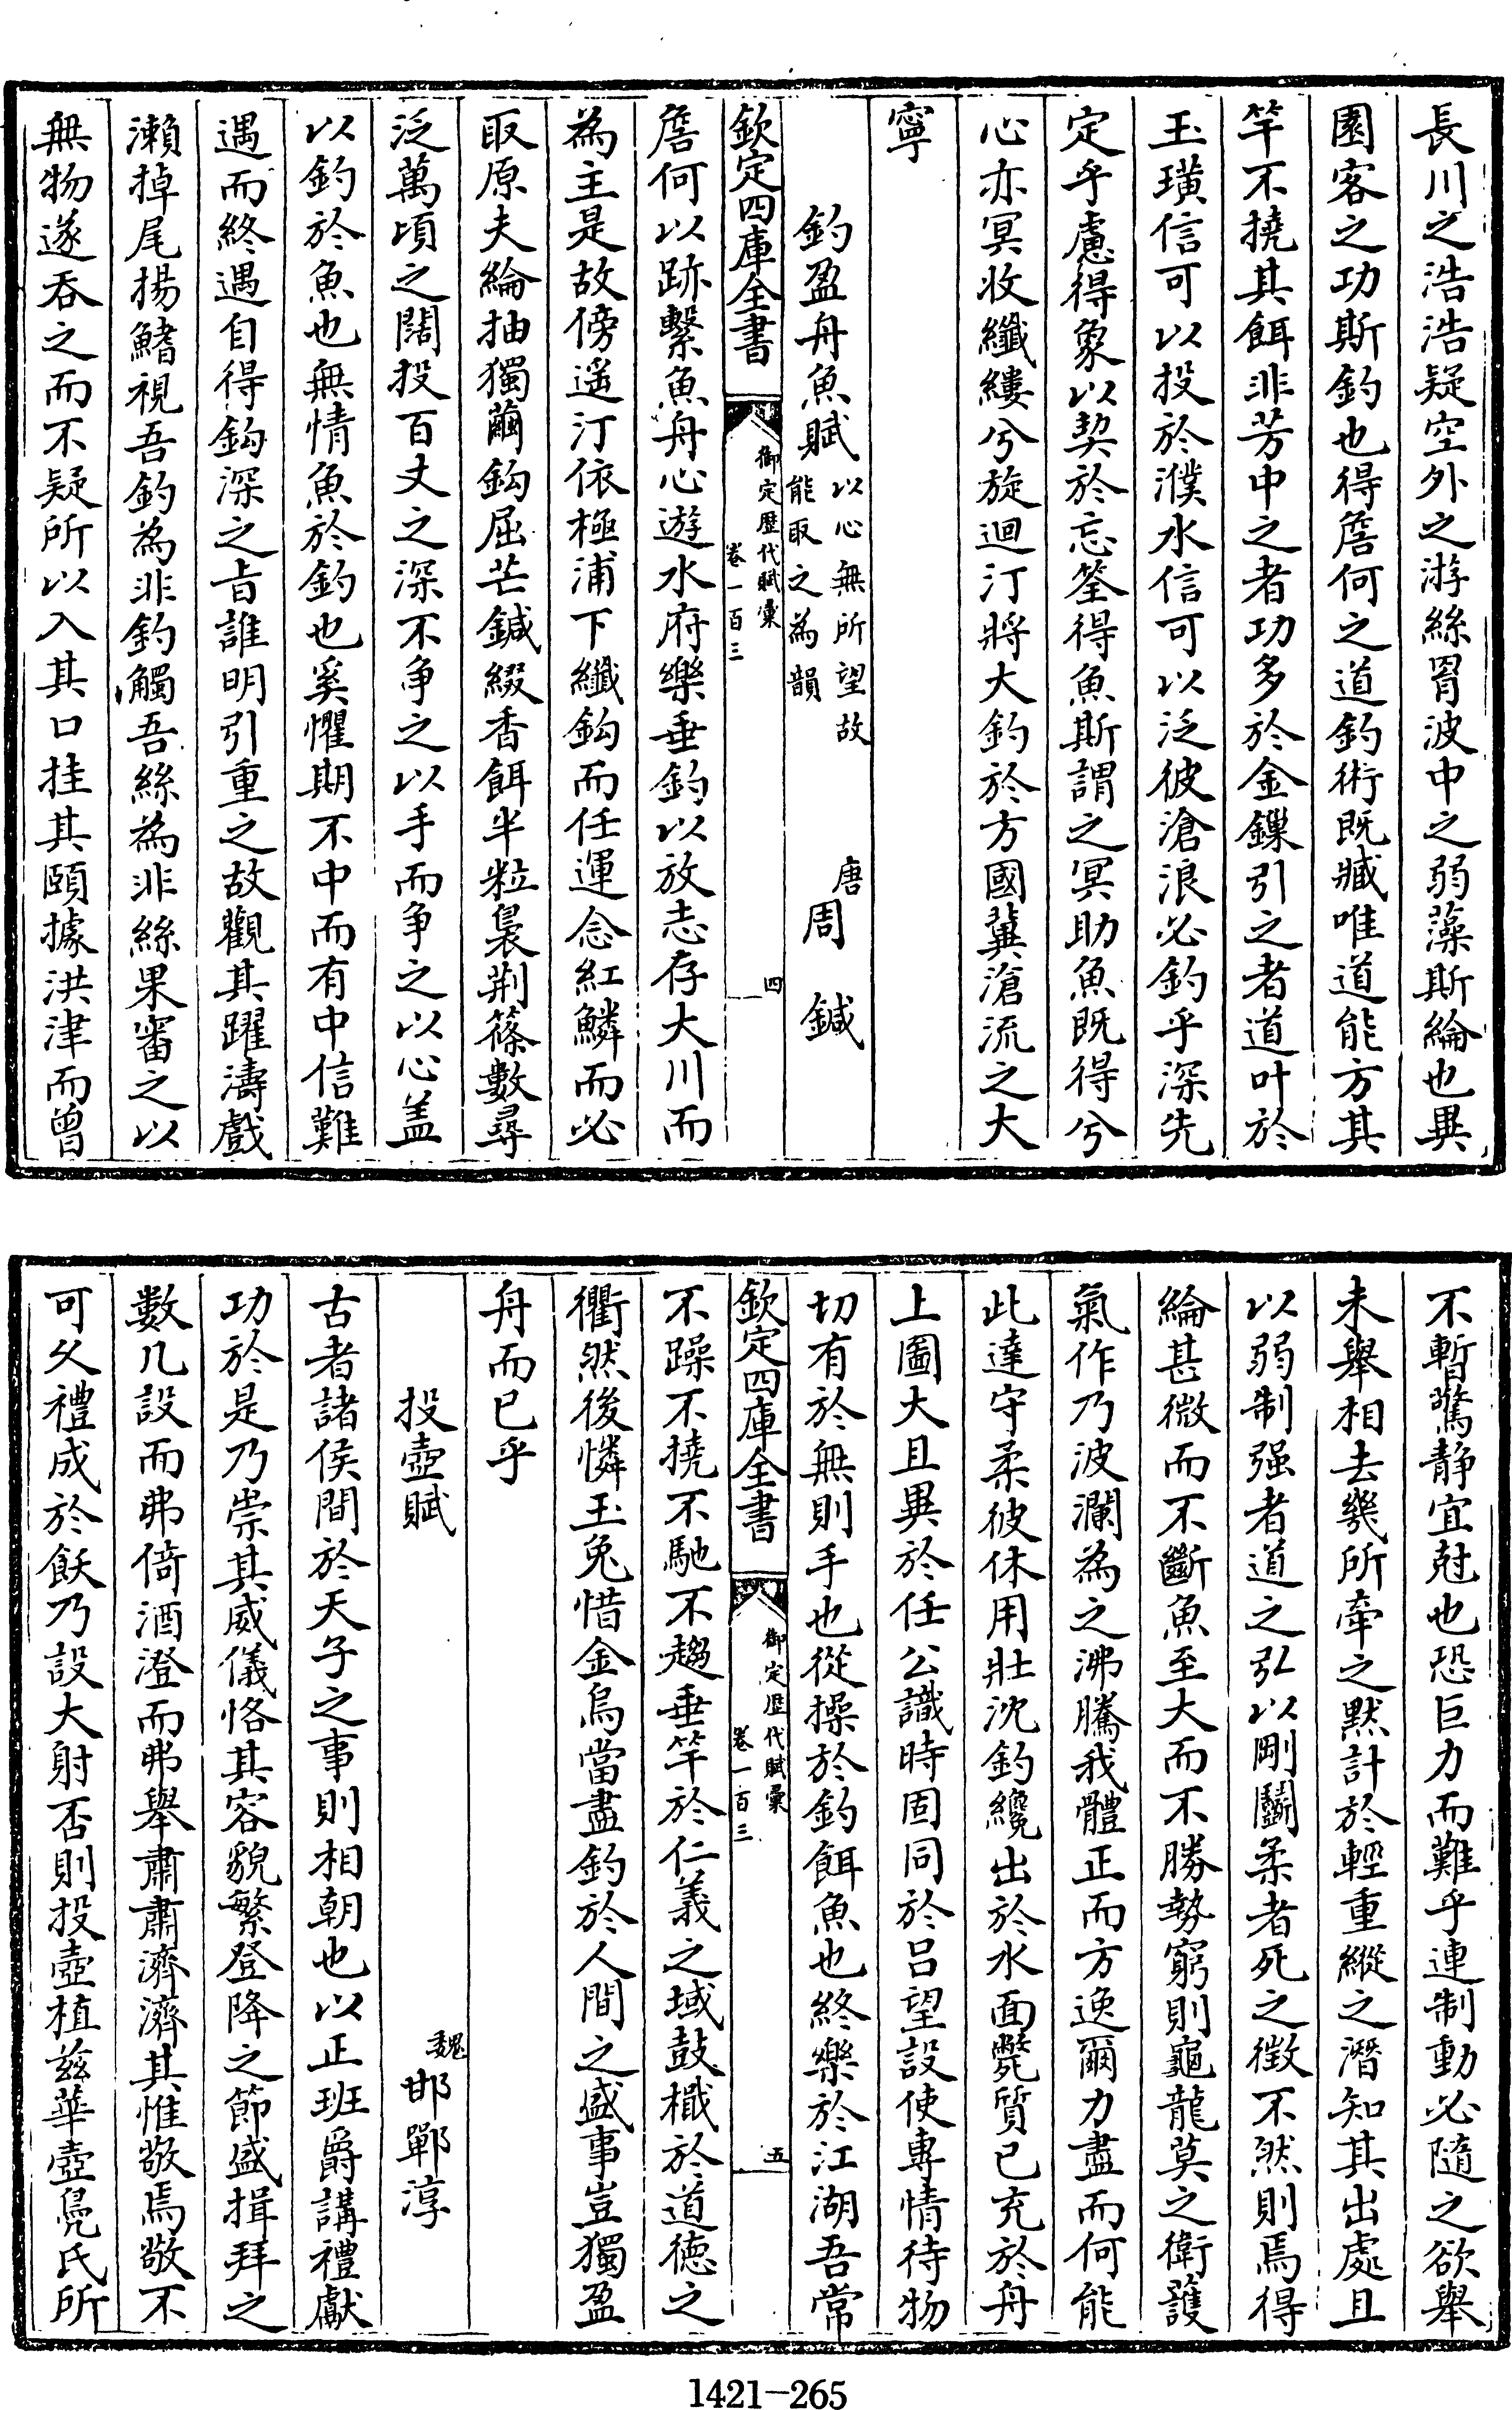 長川之浩浩疑空外之游絲罥波中之弱藻斯綸也異
園客之功斯釣也得詹何之道釣術既臧唯道能方其
竿不撓其餌非芳中之者功多於金鏁引之者道叶於
玉璜信可以投於濮水信可以泛彼滄浪必釣乎深先
定乎慮得象以契於忘筌得魚斯謂之冥助魚既得兮
心亦冥收纖縷兮旋迴汀將大釣於方國冀滄流之大
寧
釣盈舟魚賦以心無所望故能取之為韻 唐周鍼
欽定四庫全書 御定歴代賦彙 卷一百三 四
詹何以跡繫魚舟心遊水府樂垂釣以放志存大川而
為主是故傍遥汀依極浦下纖鈎而任運念紅鱗而必
取原夫綸抽獨繭鈎屈芒鍼綴香餌半粒裊荆篠數尋
泛萬頃之闊投百丈之深不争之以手而争之以心盖
以釣於魚也無情魚於釣也奚懼期不中而有中信難
遇而終遇自得鈎深之旨誰明引重之故觀其躍濤戲
瀨掉尾揚鰭視吾釣為非釣觸吾絲為非絲果審之以
無物遂吞之而不疑所以入其口挂其頤據洪津而曾
不暫驚静宜尅也恐巨力而難乎連制動必隨之欲舉
未舉相去幾所牽之黙計於輕重縱之潛知其出處且
以弱制强者道之引以剛鬭柔者死之徴不然則焉得
綸甚微而不斷魚至大而不勝勢窮則龜龍莫之衛護
氣作乃波瀾為之沸騰我體正而方逸爾力盡而何能
此達守柔彼休用壯沈釣纔出於水面斃質已充於舟
上圖大且異於任公識時固同於吕望設使專情待物
切有於無則手也從操於釣餌魚也終樂於江湖吾常
欽定四庫全書 御定歴代賦彙 卷一百三 五
不躁不撓不馳不趨垂竿於仁義之域鼓檝於道徳之
衢然後憐玉兔惜金烏當盡釣於人間之盛事豈獨盈
舟而已乎
投壺賦 魏邯鄲淳
古者諸侯間於天子之事則相朝也以正班爵講禮獻
功於是乃崇其威儀恪其容貌繁登降之節盛揖拜之
數几設而弗倚酒澄而弗舉肅肅濟濟其惟敬焉敬不
可久禮成於飫乃設大射否則投壺植兹華壺鳧氏所
1421-265